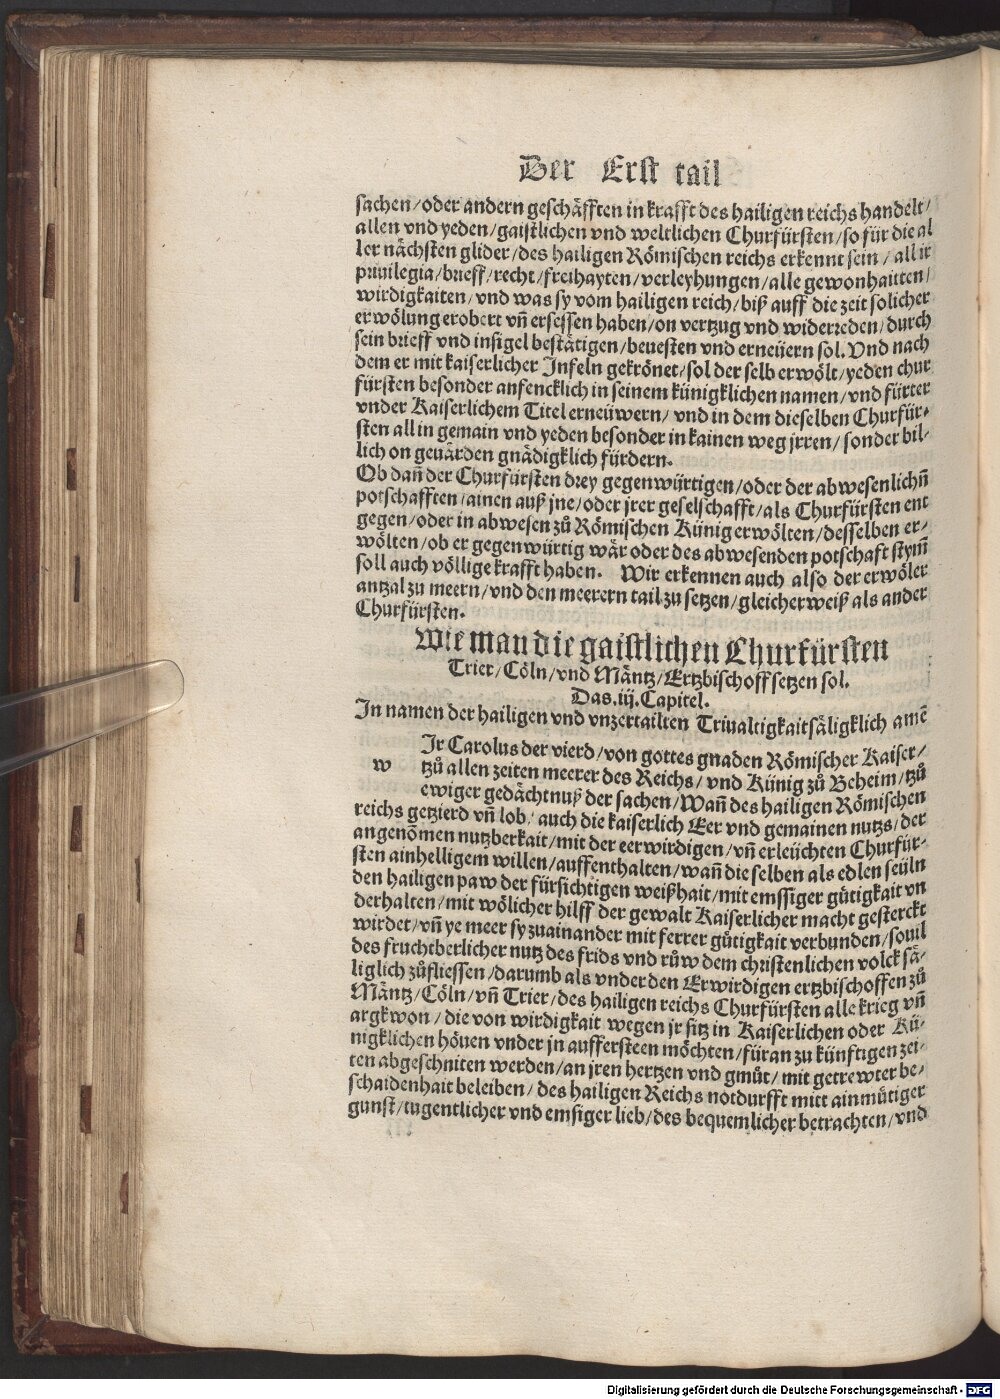 Der Erst tail
sachen/oder andern geschäfften in krafft des hailigen reichs handelt/
allen vnd yeden/gaistlichen vnd weltlichen Churfürsten/so für die al
ler nächsten glider/des hailigen Römischen reichs erkennt sein/all ir
priuilegia/brieff/recht/freihayten/verleyhungen/alle gewonhaitten/
wirdigkaiten/vnd was sy vom hailigen reich/biß auff die zeit solicher
erwölung erobert vñ ersessen haben/on vertzug vnd widerreden/durch
sein brieff vnd insigel bestätigen/beuesten vnd erneüern sol. Vnd nach
dem er mit kaiserlicher Infeln gekrönet/sol der selb erwölt/yeden chur
fürsten besonder anfencklich in seinem künigklichen namen/vnd fürter
vnder Kaiserlichem Titel erneüwern/vnd in dem dieselben Churfür⸗
sten all in gemain vnd yeden besonder in kainen weg jrren/sonder bil⸗
lich on geuärden gnädigklich fürdern.
Ob dañ der Churfürsten drey gegenwürtigen/oder der abwesenlichñ
potschafften/ainen auß jne/oder jrer geselschafft/als Churfürsten ent
gegen/oder in abwesen zů Römischen Künig erwölten/desselben er⸗
wölten/ob er gegenwürtig wär oder des abwesenden potschaft stym̃
soll auch völlige krafft haben. Wir erkennen auch also der erwöler
antzal zu meern/vnd den meerern tail zu setzen/gleicherweiß als ander
Churfürsten.
Wie man die gaistlichen Churfürsten
Trier/Cöln/vnd Mäntz/Ertzbischoff setzen sol.
Das.iij.Capitel.
In namen der hailigen vnd vnzertailten Triualtigkait säligklich amẽ
Ir Carolus der vierd/von gottes gnaden Römischer Kaiser/
w tzů allen zeiten meerer des Reichs/vnd Künig zů Beheim/tzů
ewiger gedächtnuß der sachen/Wañ des hailigen Römischen
reichs getzierd vñ lob/auch die kaiserlich Eer vnd gemainen nutzs/der
angenõmen nutzberkait/mit der eerwirdigen/vñ erleüchten Churfür⸗
sten ainhelligem willen/auffenthalten/wañ die selben als edlen seüln
den hailigen paw der fürsichtigen weißhait/mit emssiger gütigkait vn
derhalten/mit wölicher hilff der gewalt Kaiserlicher macht gesterckt
wirdet/vñ ye meer sy zuainander mit ferrer gütigkait verbunden/souil
des fruchtberlicher nutz des frids vnd růw dem christenlichen volck sä⸗
liglich zůfliessen/darumb als vnder den Erwirdigen ertzbischoffen zů
Mäntz/Cöln/vñ Trier/des hailigen reichs Churfürsten alle krieg vñ
argkwon/die von wirdigkait wegen jr sitz in Kaiserlichen oder Kü⸗
nigklichen höuen vnder jn aufferesteen möchten/füran zu künftigen zei⸗
ten abgeschniten werden/an jren hertzen vnd gmüt/mit getrewter be⸗
schaidenhait beleiben/des hailigen Reichs notdurfft mitt ainmütiger
gunst/tugentlicher vnd emsiger lieb/des bequemlicher betrachten/vnd
Digitalisierung gefördert durch die Deutsche Forschungsgemeinschaft - DFG